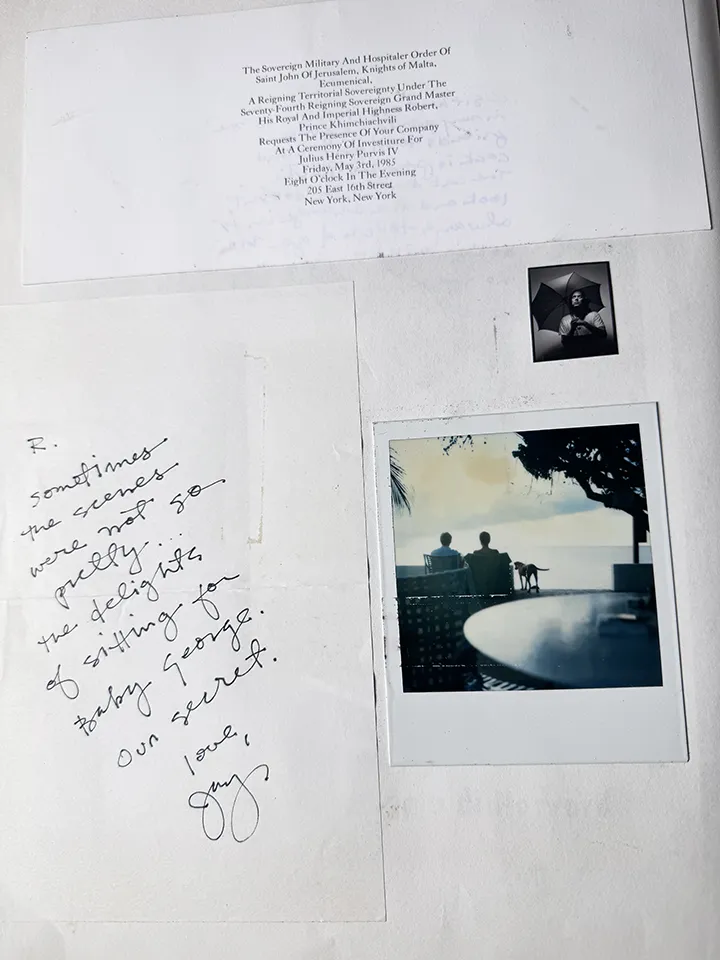 The Sovereign Military And Hospitaler Order Of
Saint John Of Jerusalem, Knights of Malta,
Ecumenical,
A Reigning Territorial Sovereignty Under The
Seventy-Fourth Reigning Sovereign Grand Master
His Royal And Imperial Highness Robert,
Prince Khimchiachvili
Requests The Presence Of Your Company
At A Ceremony Of Investiture For
Julius Henry Purvis IV
Friday, May 3rd, 1985
Eight O'clock In The Evening
205 East 16th Street
New York, New York
R.
sometimes
the scenes
were not so
pretty...
the delights
of sitting for
Baby George.
Our secret.
love,